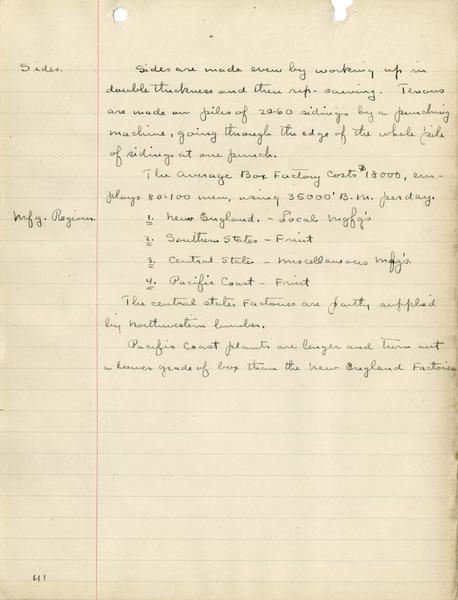 Sides. Sides are made even by working up in
double thickness and then rip-sawing. Tenons
are made on piles of 20-60 sidings by a punching
machine, going through the edge of the whole pile
of sidings at one punch.
The Average Box Factory Costs $18000, em-
ploys 80-100 men, using 35000' B.M. per day.
Mfg. Regions. 1. New England. - Local Mgfg's
2. Southern States - Fruit
3. Central States - Miscellaneous Mfg's.
4. Pacific Coast - Fruit
The central states Factories are partly supplied
by Northwestern lumber.
Pacific Coast plants are larger and turn out
a lower grade of box than the New England Factories
41